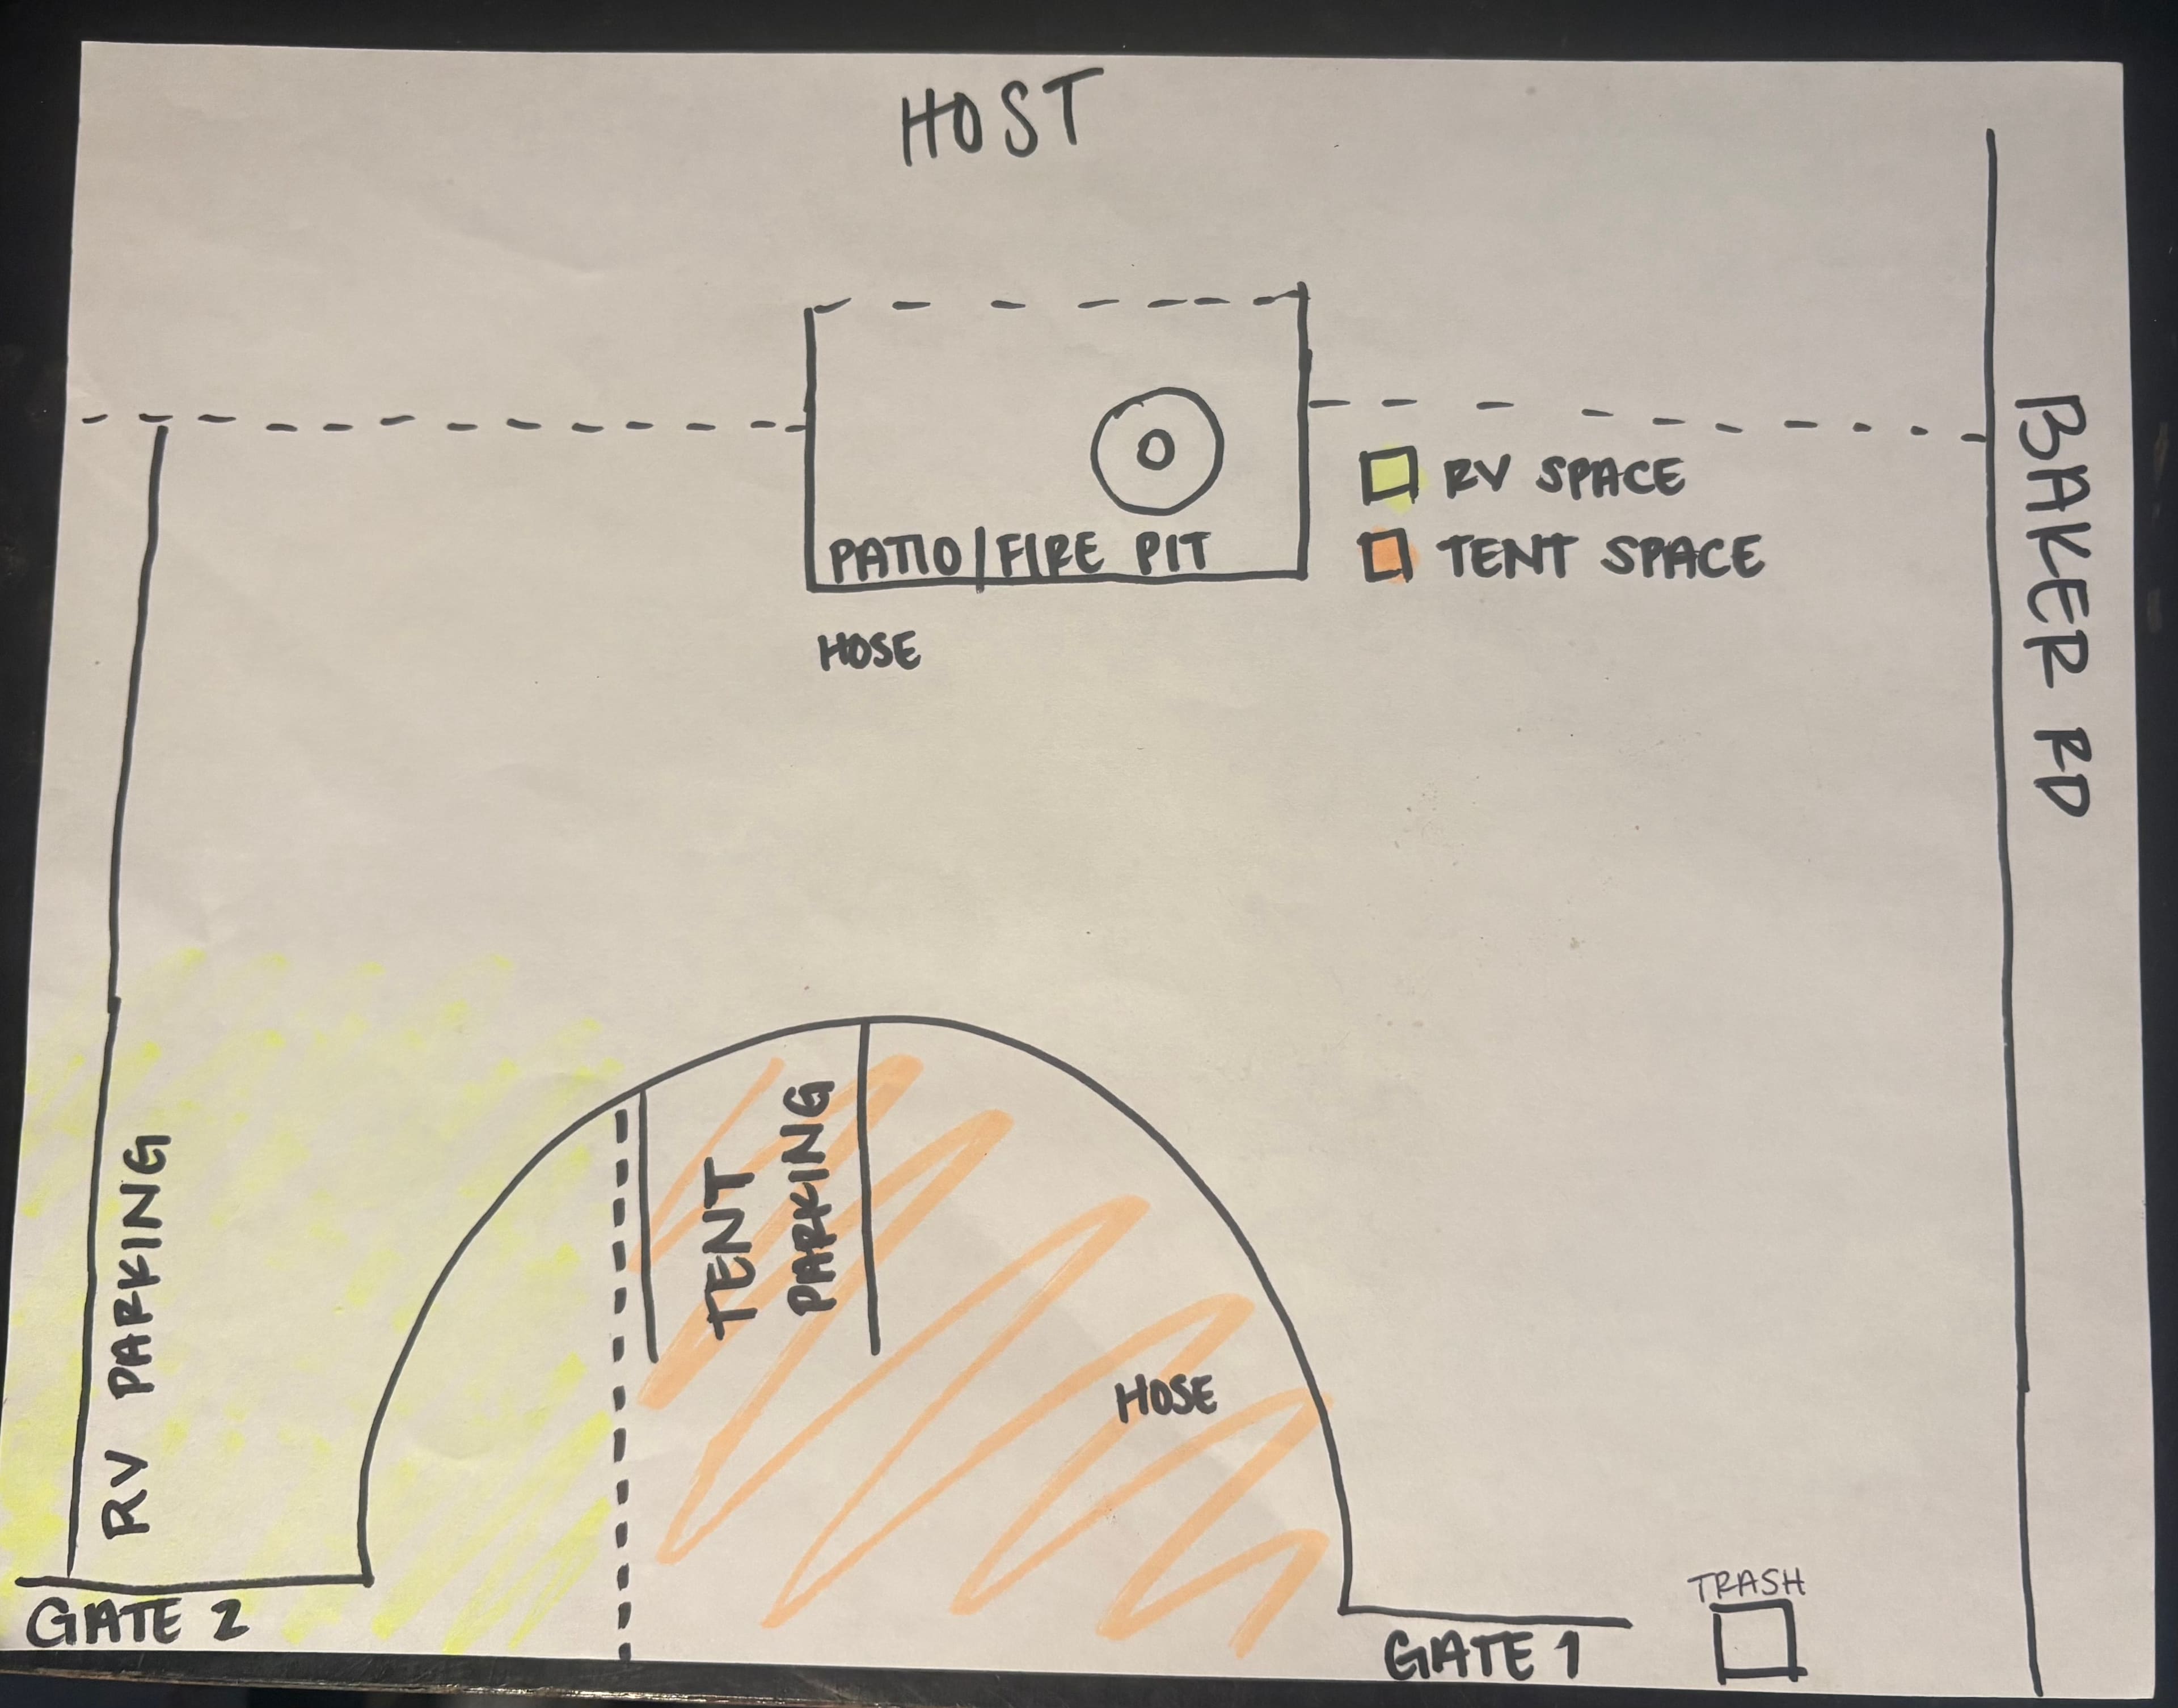 HOST
PATIO/FIRE PIT
RV SPACE
TENT SPACE
BAKER RD
HOSE
RV PARKING
TENT
PARKING
HOSE
GATE 2
GATE 1
TRASH